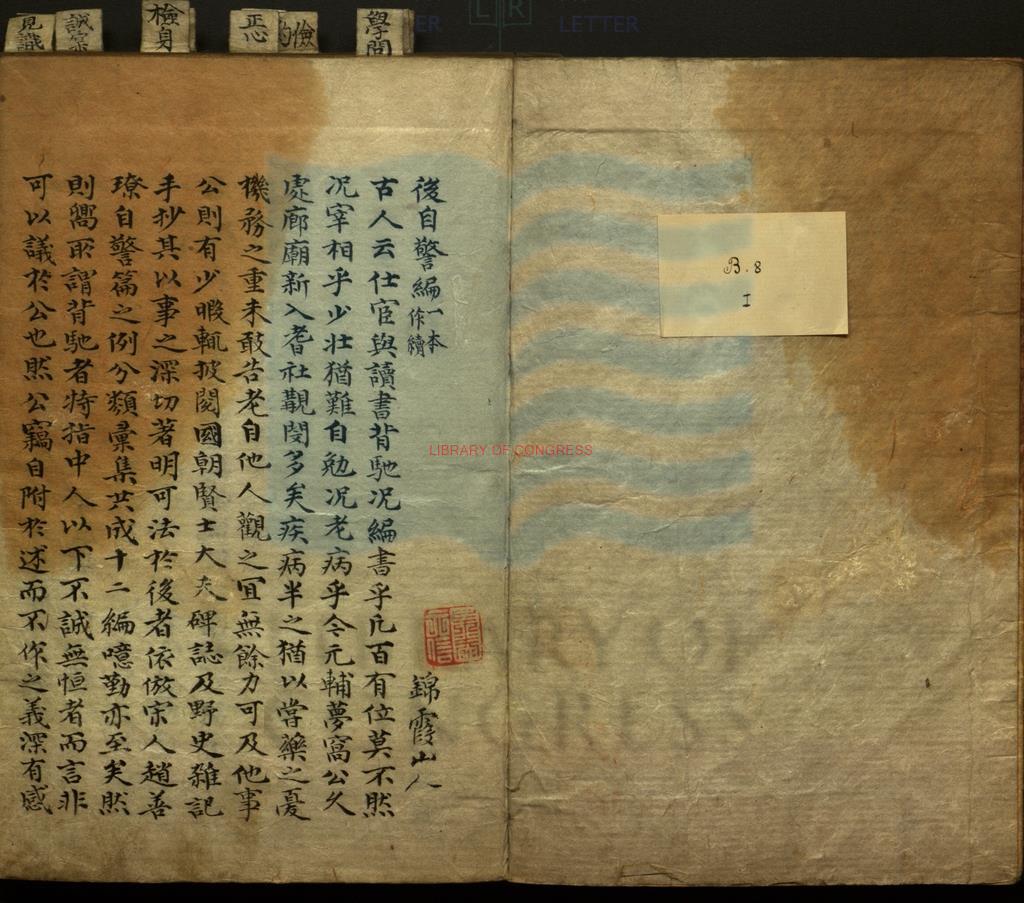 學問
儉約
正心
檢身
誠実
見識
LETTER
LR
LETTER
後自警編一本作續
錦霞山人
古人云仕宦與讀書背馳况編書乎凡百有位莫不然
况宰相乎少壯猶難自勉况老病乎今元輔夢窩公久
處廊廟新入耆社覯閔多矣疾病半之猶以當藥之憂
機務之重未敢告老自他人觀之冝無餘力可及他事
公則有少暇輒披閱國朝賢士大夫碑誌及野史雜記
手抄其以事之深切著明可法於後者依倣宗人趙善
璙自警篇之例分類彙集共成十二編噫勤亦至矣然
則嚮所謂背馳者特指中人以下不誠無恒者而言非
可以議於公也然公竊自附於述而不作之義深有感
B.8
I
LIBRARY OF CONGRESS